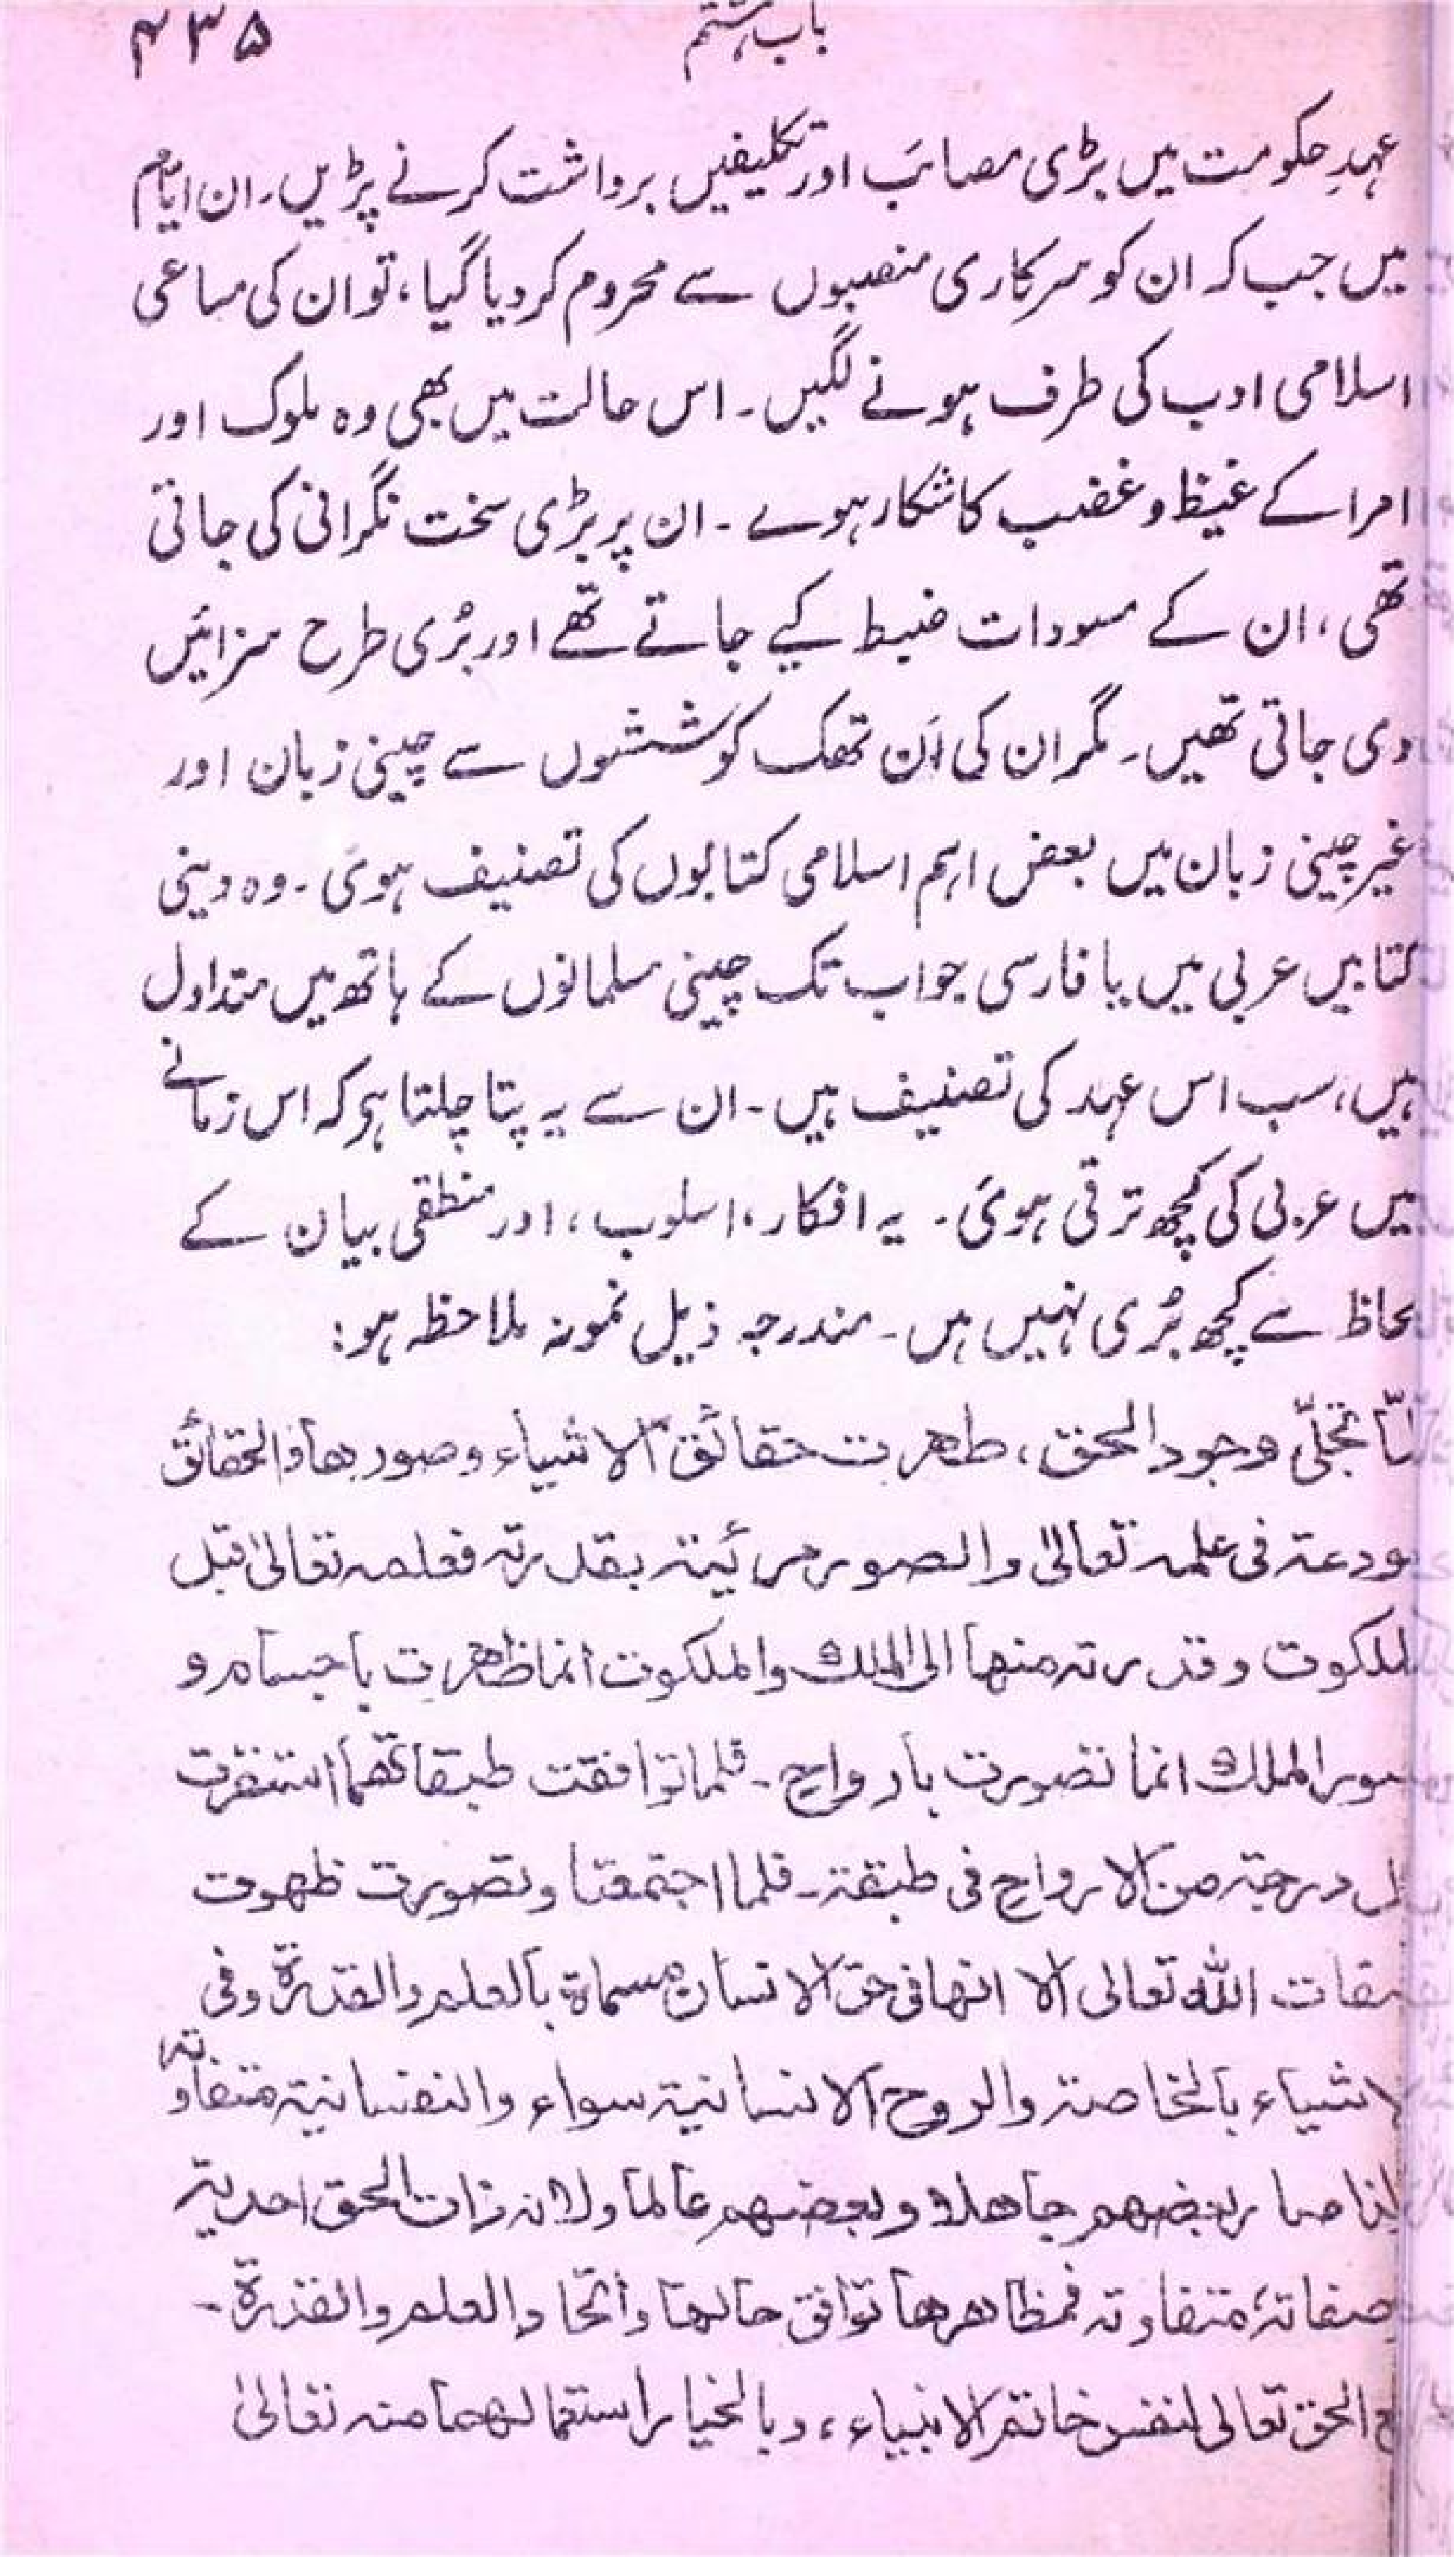 باب ہشتم ۴۳۵
عہدِ حکومت میں بڑی مصائب اور تکلیفیں برداشت کرنے پڑیں۔ ان ایّام
میں جب کہ ان کو سرکاری منصبوں سے محروم کر دیا گیا، تو ان کی مساعی
اسلامی ادب کی طرف ہونے لگیں۔ اس حالت میں بھی وہ ملوک اور
امرا کے غیظ و غضب کا شکار ہوے۔ ان پر بڑی سخت نگرانی کی جاتی
تھی، ان کے مسودات ضبط کیے جاتے تھے اور بُری طرح سزائیں
دی جاتی تھیں۔ مگر ان کی اَن تھک کوششوں سے چینی زبان اور
غیر چینی زبان میں بعض اہم اسلامی کتابوں کی تصنیف ہوئ۔ وہ دینی
کتابیں عربی میں یا فارسی جو اب تک چینی مسلمانوں کے ہاتھ میں متداول
ہیں، سب اس عہد کی تصنیف ہیں۔ ان سے یہ پتا چلتا ہو کہ اس زمانے
میں عربی کی کچھ ترقی ہوئ۔ یہ افکار، اسلوب، اور منطقی بیان کے
لحاظ سے کچھ بُری نہیں ہیں۔ مندرجہ ذیل نمونہ ملاحظہ ہو:
لمّا تجلّی وجود الحق، طهرت حقائق الاشیاء وصورها فالحقائق
مودعة فی علمه تعالیٰ والصور مرئیة بقدرته فعلمه تعالیٰ قبل
الملکوت وقدرته منها الی الملك والملکوت انما ظهرت باجسام و
صور الملك انما تصورت بارواح۔ فلما توافقت طبقاتهما استقرت
کل درجة من الارواح فی طبقة۔ فلما اجتمعتا وتصورت ظهوت
صفات الله تعالی الا انها فی حق الانسان مسماة بالعلم والقدرة وفی
الاشیاء بالخاصة والروح الانسانیة سواء والنفسانیة متفاوته
لذا صار بعضهم جاهلا وبعضهم عالما ولانه ذات الحق احدیة
صفاته متفاوته فمظاهرها توافق حالها واتحاد العلم والقدرة۔
الحق تعالی لنفس خاتم الانبیاء، وبالخیار استعمالهما منه تعالیٰ